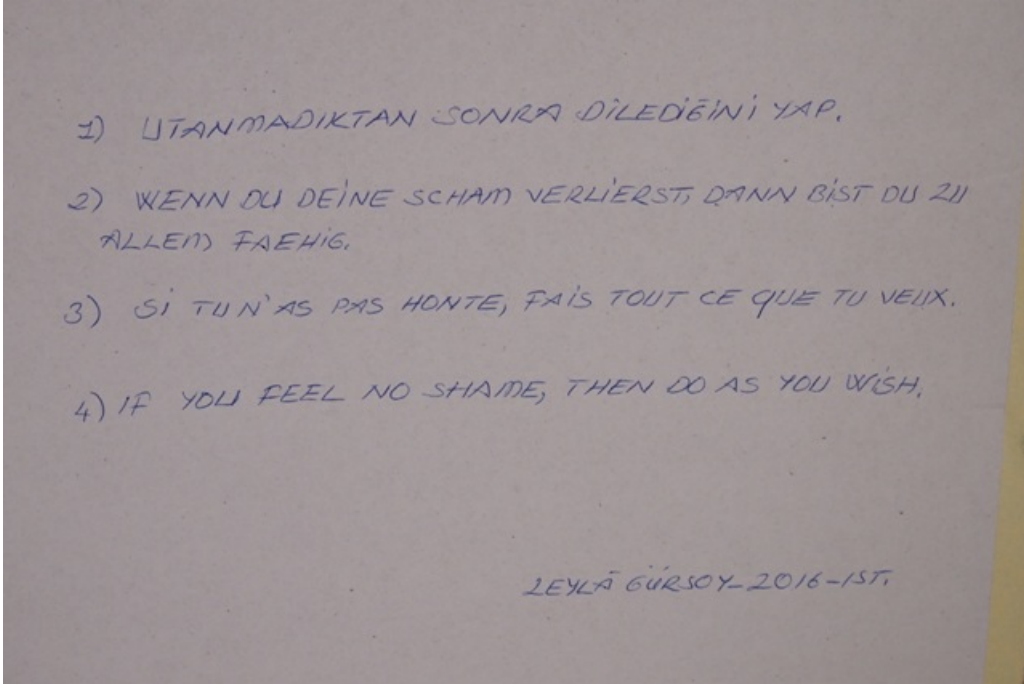 1) UTANMADIKTAN SONRA DİLEDİĞİNİ YAP.
2) WENN DU DEİNE SCHAM VERLİERST, DANN BİST DU ZU
ALLEM FAEHİG.
3) Sİ TU N'AS PAS HONTE, FAİS TOUT CE QUE TU VEUX.
4) IF YOU FEEL NO SHAME, THEN DO AS YOU WİSH.
LEYLÂ GÜRSOY-2016-IST.